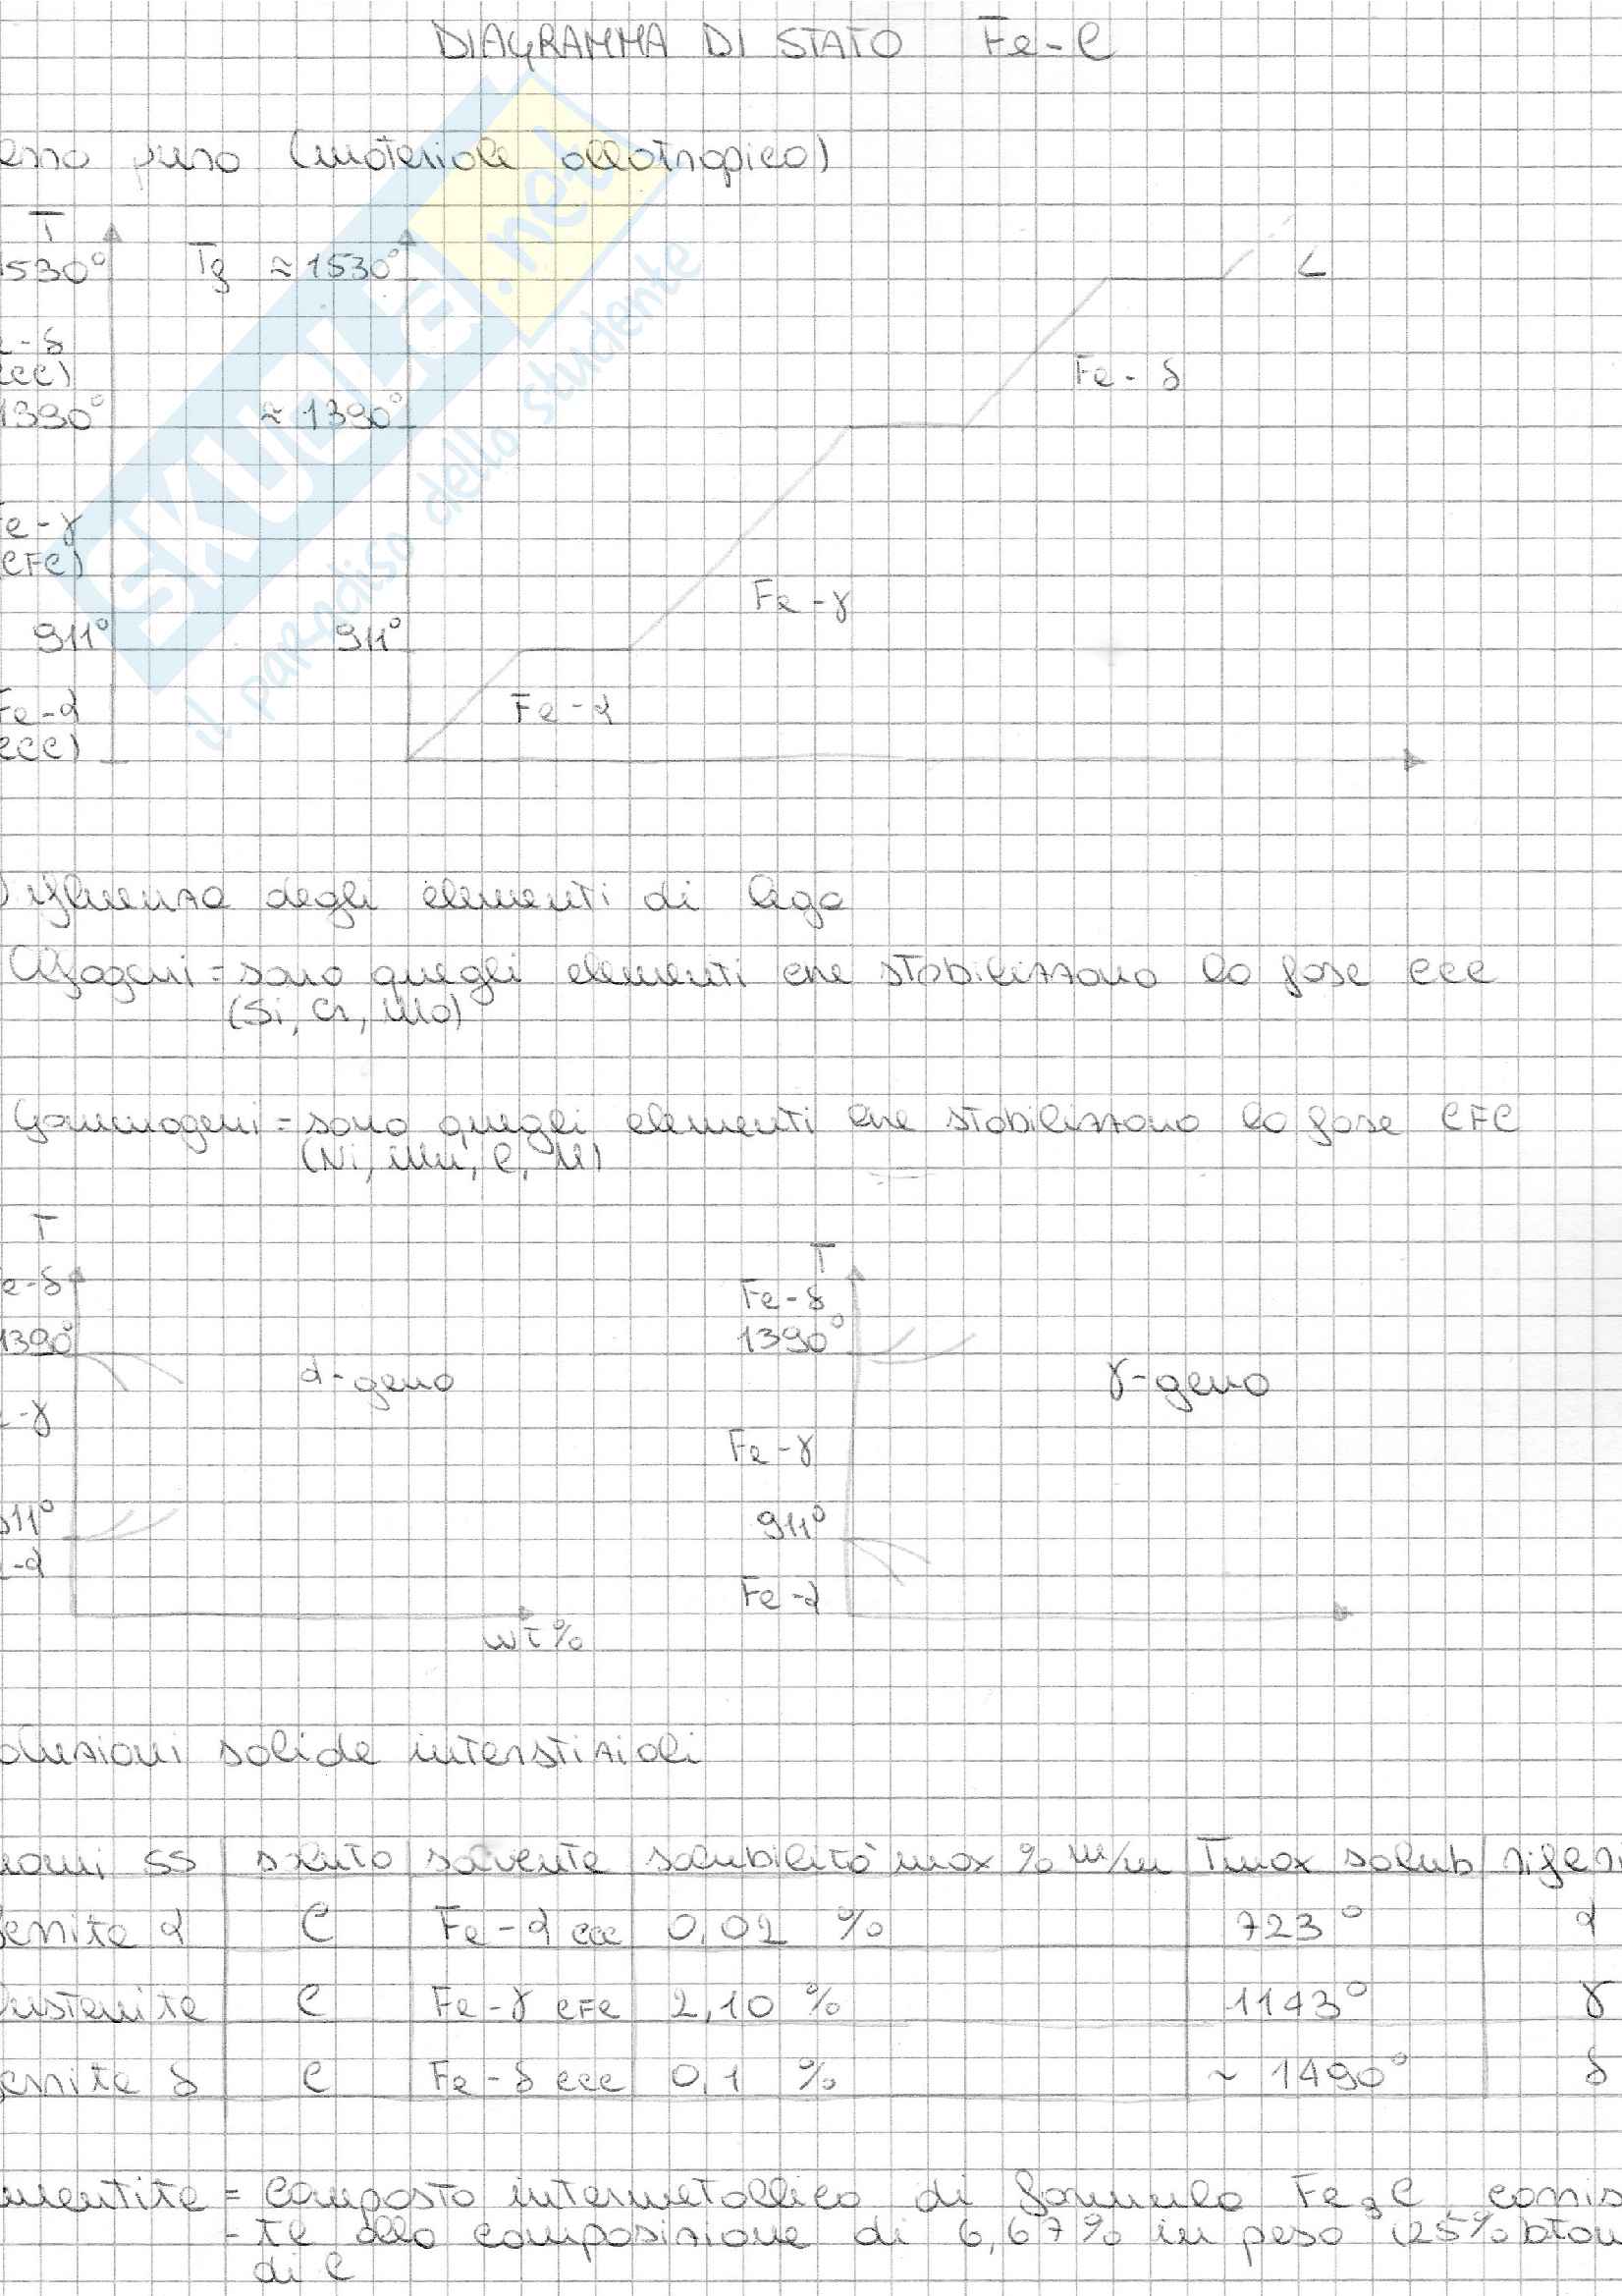 DIAGRAMMA DI STATO Fe-C
erro puro (materiale allotropico)
T
1530° Tf ≈ 1530° L
e-δ
(CCC) Fe-δ
1390° ≈ 1390°
Fe-γ
(CFC)
Fe-γ
911° 911°
Fe-α Fe-α
(CCC)
SKUOLA.net
il paradiso dello studente
Influenza degli elementi di lega
Alfageni = sono quegli elementi che stabilizzano la fase CCC
(Si, Cr, Mo)
Gammageni = sono quegli elementi che stabilizzano la fase CFC
(Ni, Mn, C, N)
T T
e-δ Fe-δ
1390° 1390°
α-geno γ-geno
-γ Fe-γ
911° 911°
-α Fe-α
wt%
oluzioni solide interstiziali
nomi SS soluto solvente solubilità max % m/m Tmax solub riferi
ferrite α C Fe-α ccc 0,02 % 723° α
austenite C Fe-γ CFC 2,10 % 1143° γ
ferrite δ C Fe-δ ccc 0,1 % ~ 1490° δ
mentite = composto intermetallico di formula Fe3C, corris
-te alla composizione di 6,67% in peso (25% atom
di C